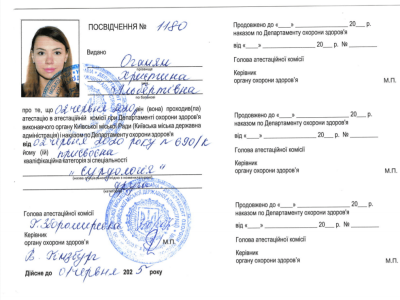 ПОСВІДЧЕННЯ № 1180
Видано Оганян
прізвище
Христина
ім'я
Альбертівна
по батькові
про те, що 02 червня 2020 р. він (вона) проходив(ла)
атестацію в атестаційній комісії при Департаменті охорони здоров'я
виконавчого органу Київської міської Ради (Київська міська державна
адміністрація) і наказом по Департаменту охорони здоров'я
від 02 червня 2020 року № 690/к
йому (їй) присвоєна
кваліфікаційна категорія зі спеціальності
"сурдологія"
друга
Голова атестаційної комісії
Керівник
органу охорони здоров'я М.П.
Дійсне до 01 червня 2025 року
Продовжено до «____» ____________ 20___ р.
наказом по Департаменту охорони здоров'я
від «____» ____________ 20___ р. № ____
Голова атестаційної комісії
Керівник
органу охорони здоров'я М.П.
Продовжено до «____» ____________ 20___ р.
наказом по Департаменту охорони здоров'я
від «____» ____________ 20___ р. № ____
Голова атестаційної комісії
Керівник
органу охорони здоров'я М.П.
Продовжено до «____» ____________ 20___ р.
наказом по Департаменту охорони здоров'я
від «____» ____________ 20___ р. № ____
Голова атестаційної комісії
Керівник
органу охорони здоров'я М.П.